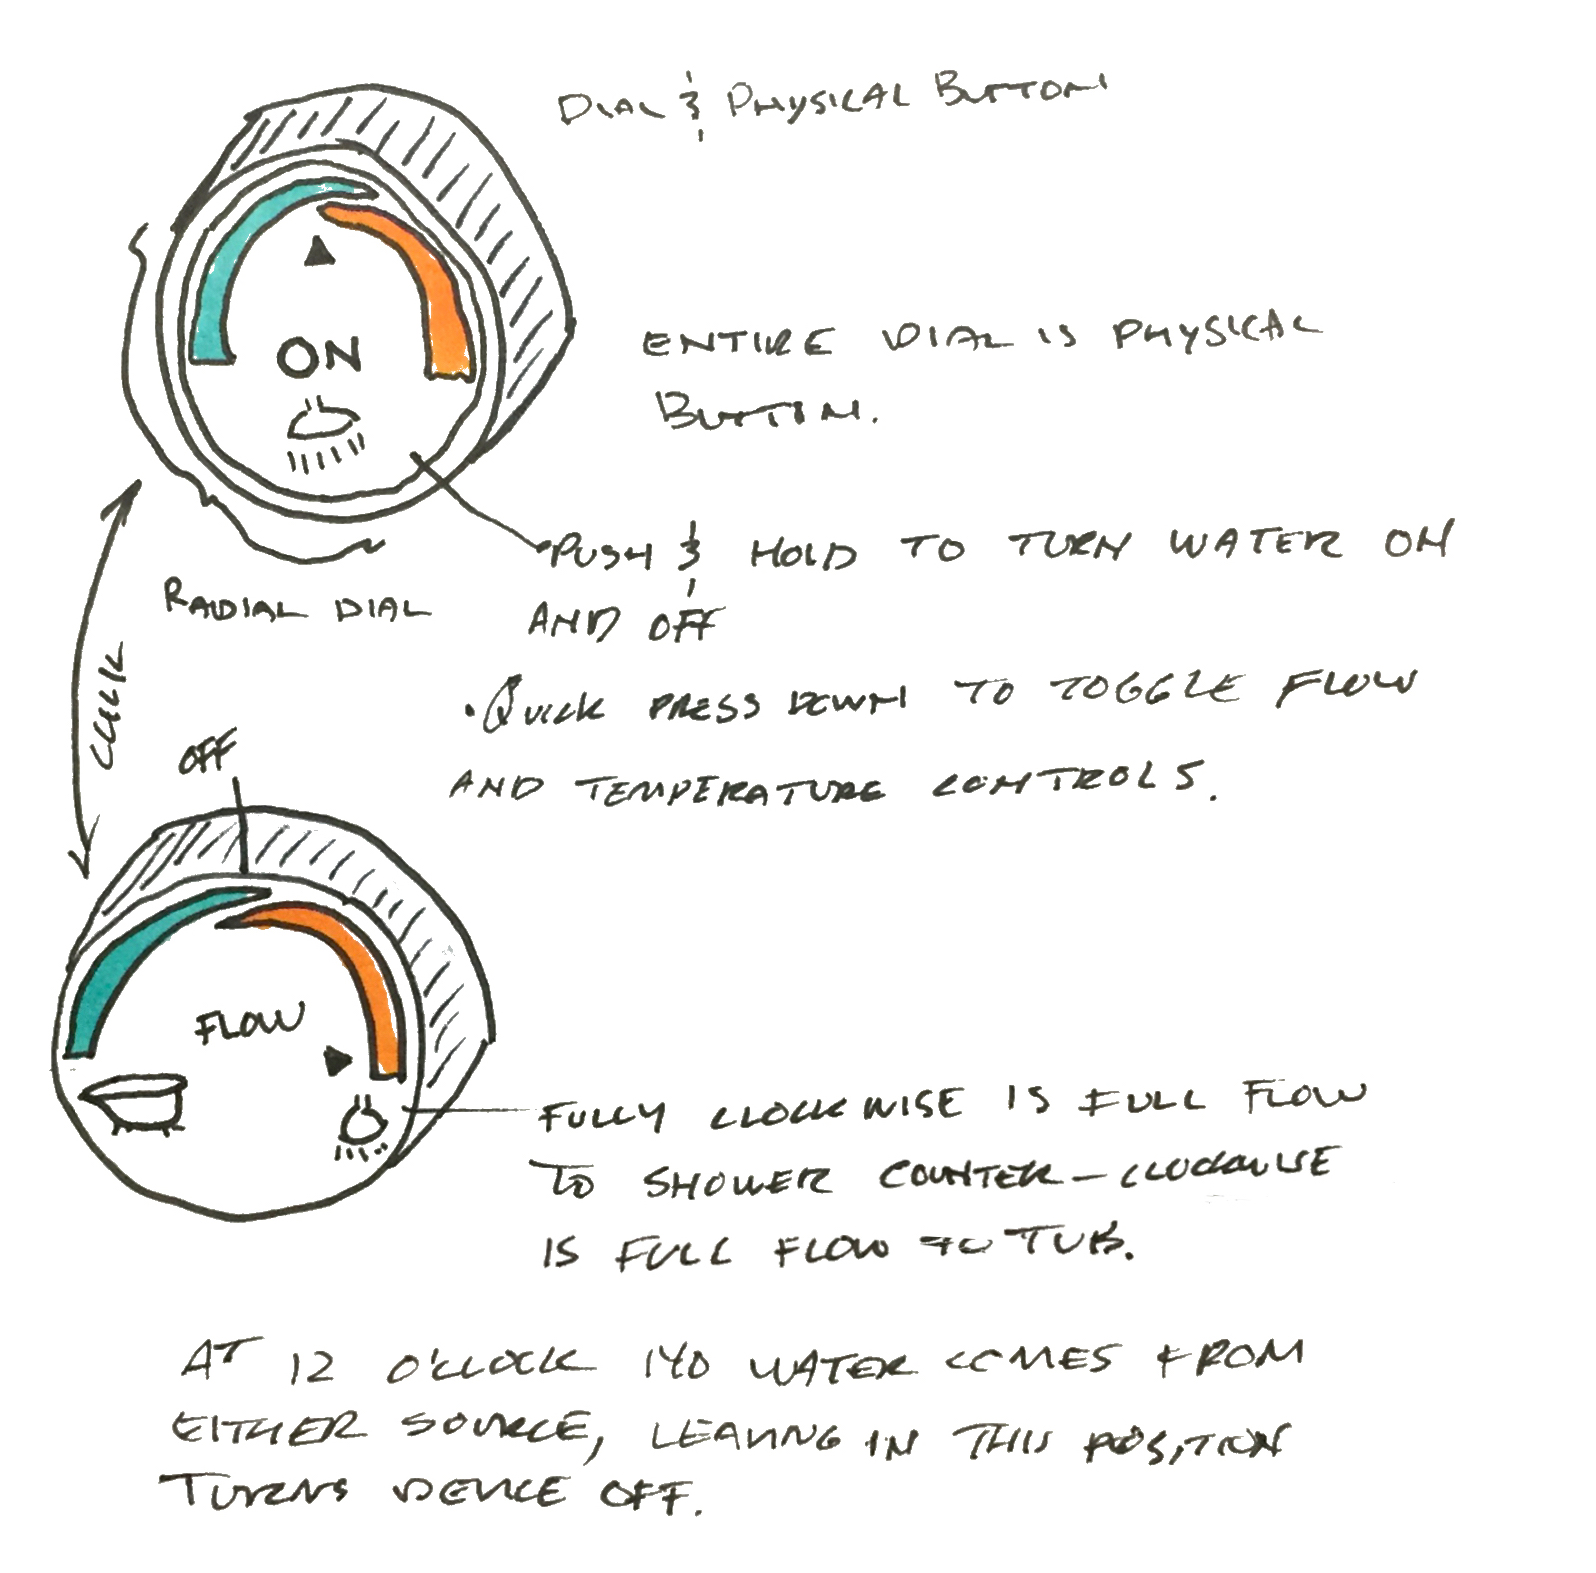 DIAL & PHYSICAL BUTTON
ON
ENTIRE DIAL IS PHYSICAL
BUTTON.
RADIAL DIAL
• PUSH & HOLD TO TURN WATER ON
AND OFF
CLICK
• QUICK PRESS DOWN TO TOGGLE FLOW
AND TEMPERATURE CONTROLS.
OFF
FLOW
FULLY CLOCKWISE IS FULL FLOW
TO SHOWER COUNTER-CLOCKWISE
IS FULL FLOW TO TUB.
AT 12 O'CLOCK NO WATER COMES FROM
EITHER SOURCE, LEAVING IN THIS POSITION
TURNS DEVICE OFF.